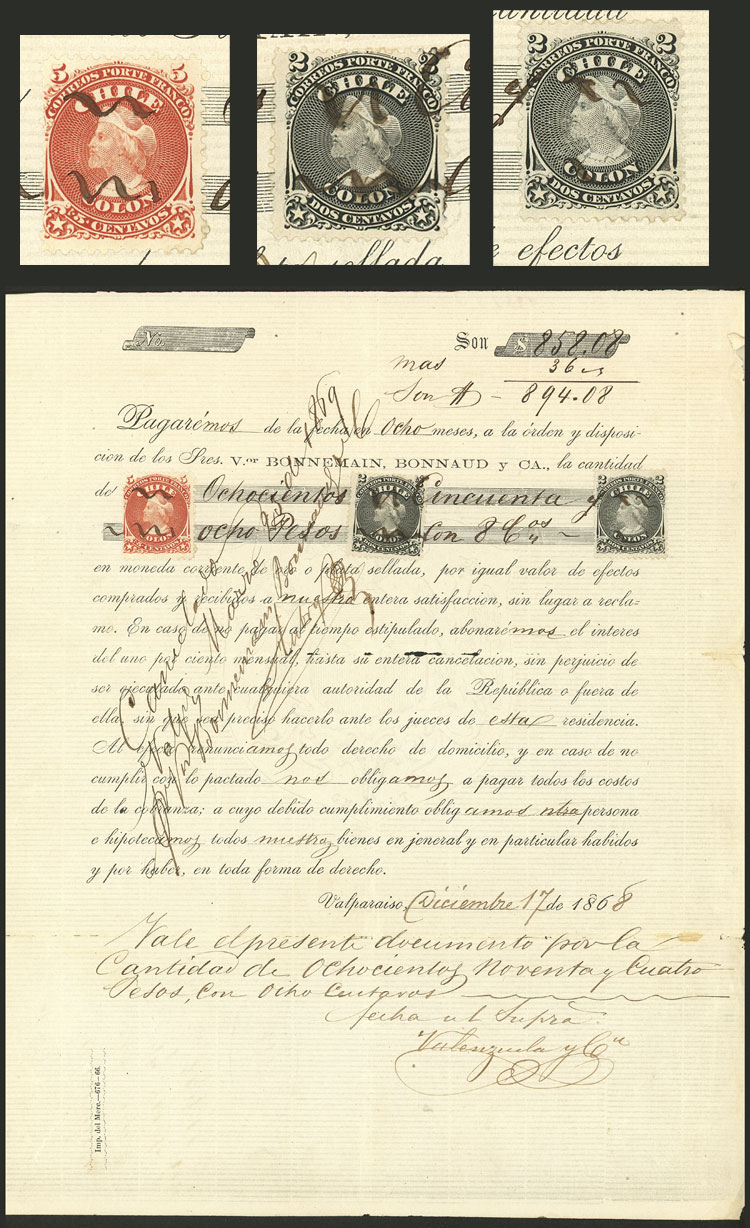 5 5
CORREOS PORTE FRANCO
CHILE
COLON
5 CENTAVOS
2 2
CORREOS PORTE FRANCO
CHILE
COLON
DOS CENTAVOS
sellada
2 2
CORREOS PORTE FRANCO
CHILE
COLON
DOS CENTAVOS
e efectos
No. Son $ 858.08
mas 36
Son $ - 894.08
Pagarémos de la fecha en Ocho meses, a la órden y disposi-
cion de los Sres. V.or BONNEMAIN, BONNAUD y CA., la cantidad
de Ochocientos Cincuenta y
ocho Pesos con 8 Cos
5 5
CHILE
COLON
5 CENTAVOS
2 2
CHILE
COLON
DOS CENTAVOS
2 2
CHILE
COLON
DOS CENTAVOS
en moneda corriente de oro o plata sellada, por igual valor de efectos
comprados y recibidos a nuestra entera satisfaccion, sin lugar a recla-
mo. En caso de no pagar al tiempo estipulado, abonarémos el interes
del uno por ciento mensual, hasta su entera cancelacion, sin perjuicio de
ser ejecutado ante cualquiera autoridad de la República o fuera de
ella, sin que sea preciso hacerlo ante los jueces de esta residencia.
Al efecto renunciamos todo derecho de domicilio, y en caso de no
cumplir con lo pactado nos obligamos a pagar todos los costos
de la cobranza; a cuyo debido cumplimiento obligamos ntra persona
e hipotecamos todos nuestros bienes en jeneral y en particular habidos
y por haber, en toda forma de derecho.
Valparaiso, Diciembre 17 de 1868
Vale el presente documento por la
Cantidad de Ochocientos Noventa y Cuatro
Pesos, con Ocho Centavos
fecha ut Supra
Valenzuela y Ca
Cancelado
Valpso 1869
Bonnemain Bonnaud
Imp. del Merc.—676—66.